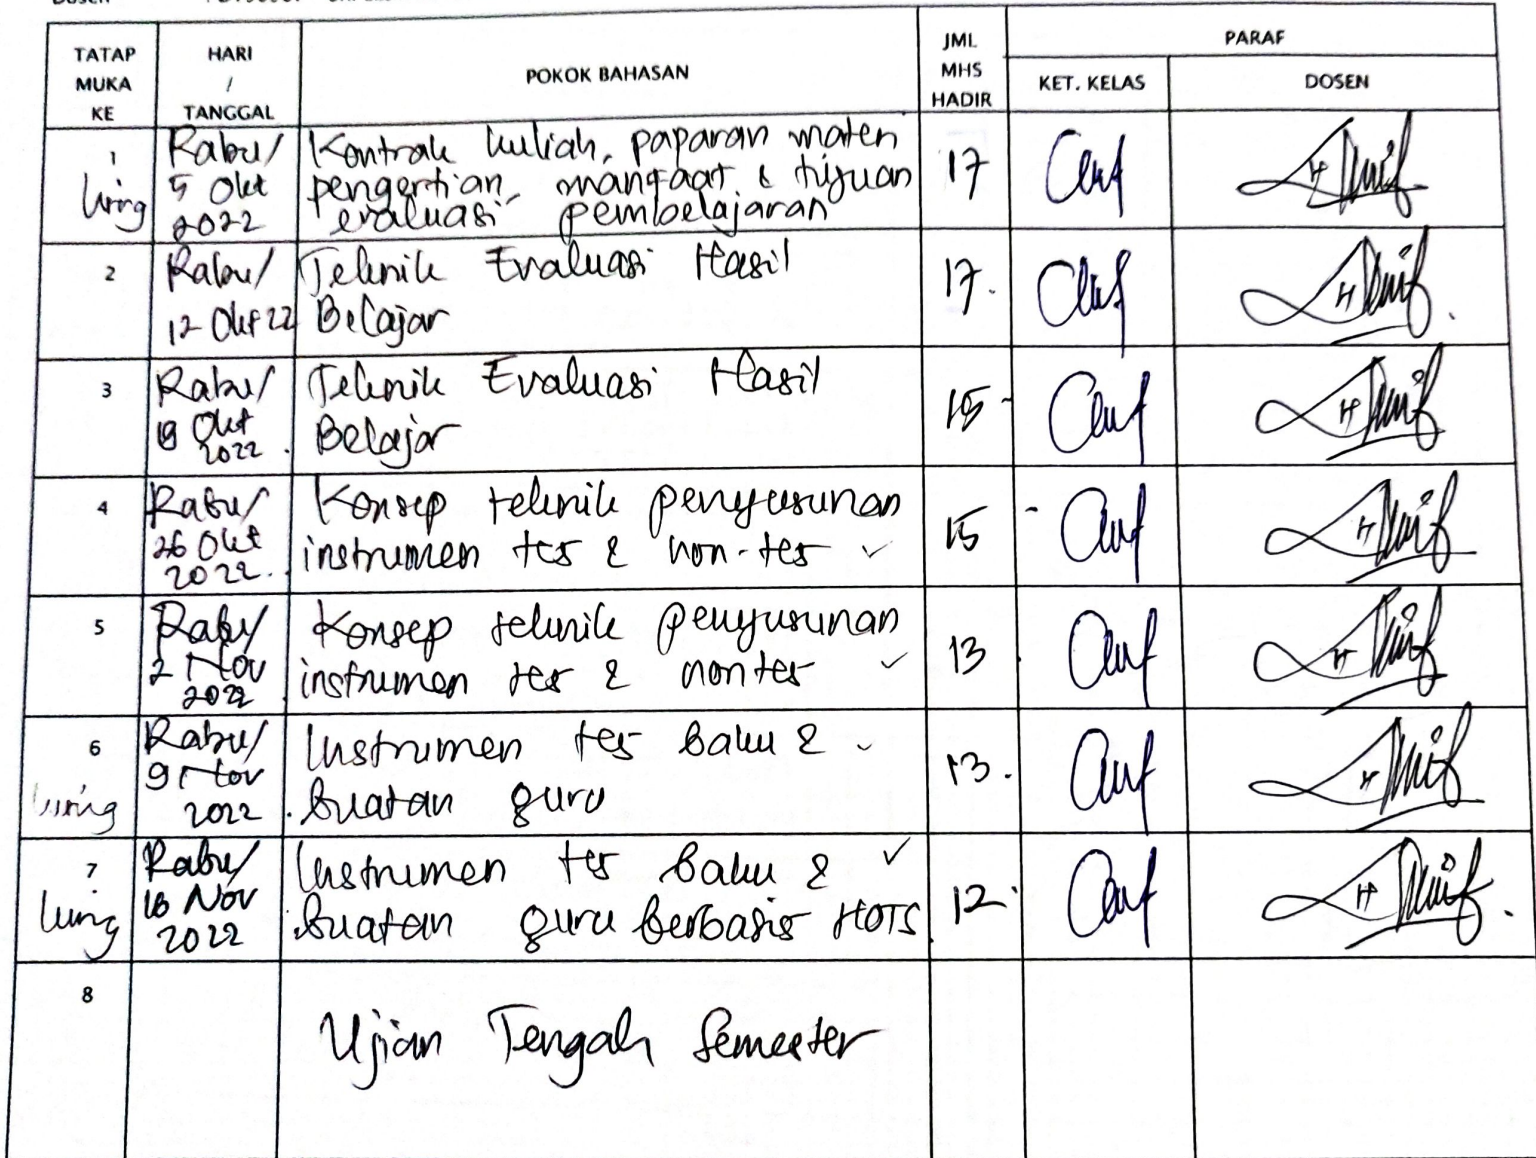 TATAP
MUKA
KE
HARI
/
TANGGAL
POKOK BAHASAN
JML
MHS
HADIR
PARAF
KET. KELAS
DOSEN
1
luring
Rabu/
5 Okt
2022
Kontrak kuliah, paparan materi
pengertian, manfaat & tujuan
evaluasi pembelajaran
17
2
Rabu/
12 Okt 22
Teknik Evaluasi Hasil
Belajar
17.
3
Rabu/
19 Okt
2022.
Teknik Evaluasi Hasil
Belajar
15
4
Rabu/
26 Okt
2022.
Konsep teknik penyusunan
instrumen tes & non-tes ✓
15
5
Rabu/
2 Nov
2022
Konsep teknik penyusunan
instrumen tes & nontes ✓
13
6
luring
Rabu/
9 Nov
2022.
Instrumen tes baku & ✓
buatan guru
13.
7
luring
Rabu/
16 Nov
2022
Instrumen tes baku & ✓
buatan guru berbasis HOTS
12
8
Ujian Tengah Semester